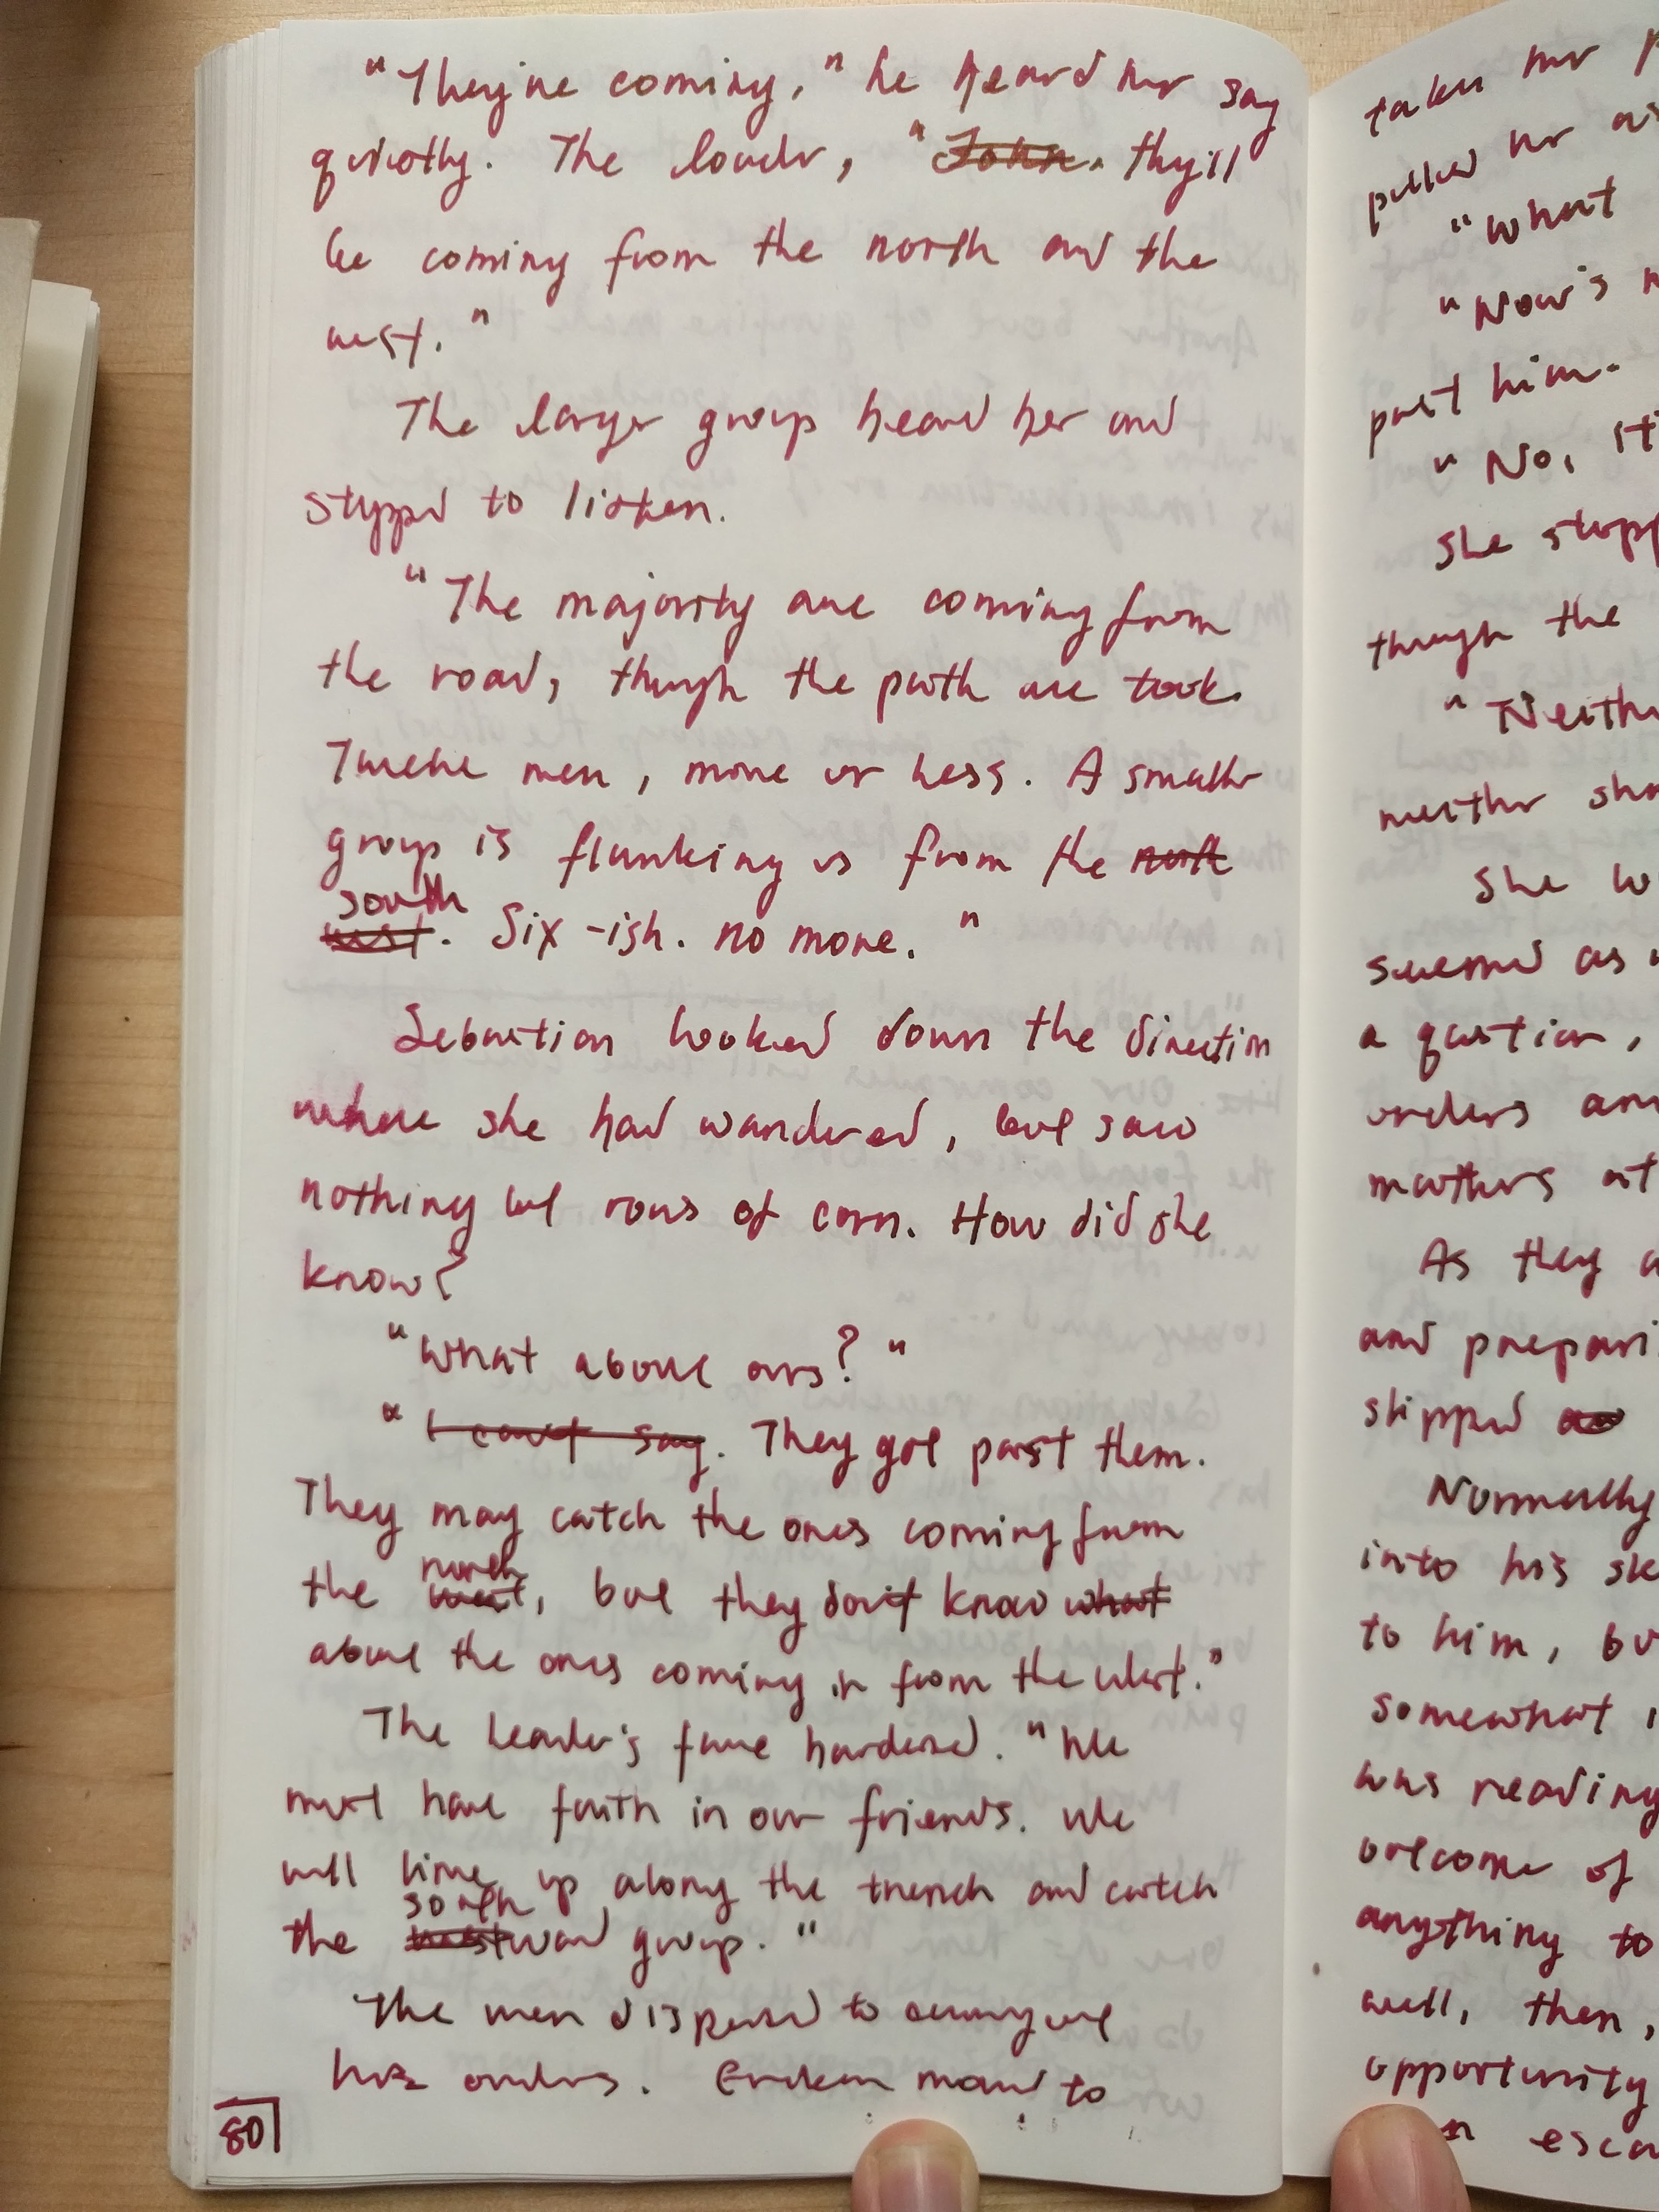 "They're coming," he heard her say
quietly. The louder, "John. they'll
be coming from the north and the
west."
The larger group heard her and
stopped to listen.
"The majority are coming from
the road, though the path we took.
Twelve men, more or less. A smaller
group is flanking us from the north
south
west. Six-ish. no more."
Sebastian looked down the direction
where she had wandered, but saw
nothing but rows of corn. How did she
know?
"What about ours?"
"I can't say. They got past them.
They may catch the ones coming from
north
the west, but they don't know what
about the ones coming in from the west."
The leader's face hardened. "We
must have faith in our friends. We
will line up along the trench and catch
south
the westward group."
The men dispersed to carry out
his orders. moved to
80
taken her
pulled her
"What
"Now's
past him.
"No, it
She stopp
though the
"Neith
neither sh
She w
seemed as
a question,
orders an
matters at
As they
and prepari
slipped
Normally
into his sk
to him, bu
somewhat
was reading
outcome of
anything to
well, then,
opportunity
esca